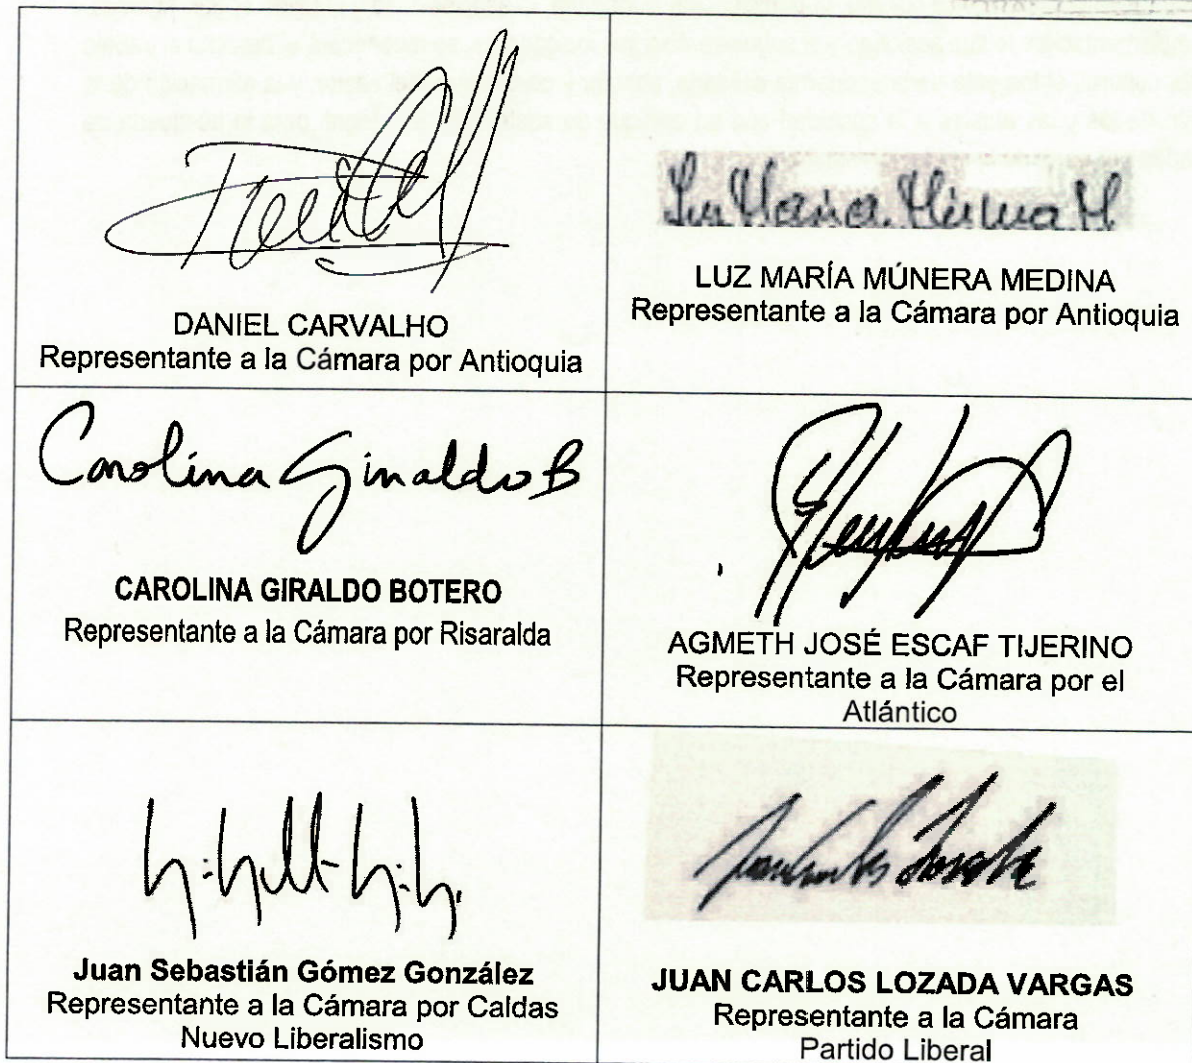 DANIEL CARVALHO
Representante a la Cámara por Antioquia
Luz Maria Múnera M
LUZ MARÍA MÚNERA MEDINA
Representante a la Cámara por Antioquia
Carolina Giraldo B
CAROLINA GIRALDO BOTERO
Representante a la Cámara por Risaralda
AGMETH JOSÉ ESCAF TIJERINO
Representante a la Cámara por el
Atlántico
Juan Sebastián Gómez González
Representante a la Cámara por Caldas
Nuevo Liberalismo
JUAN CARLOS LOZADA VARGAS
Representante a la Cámara
Partido Liberal